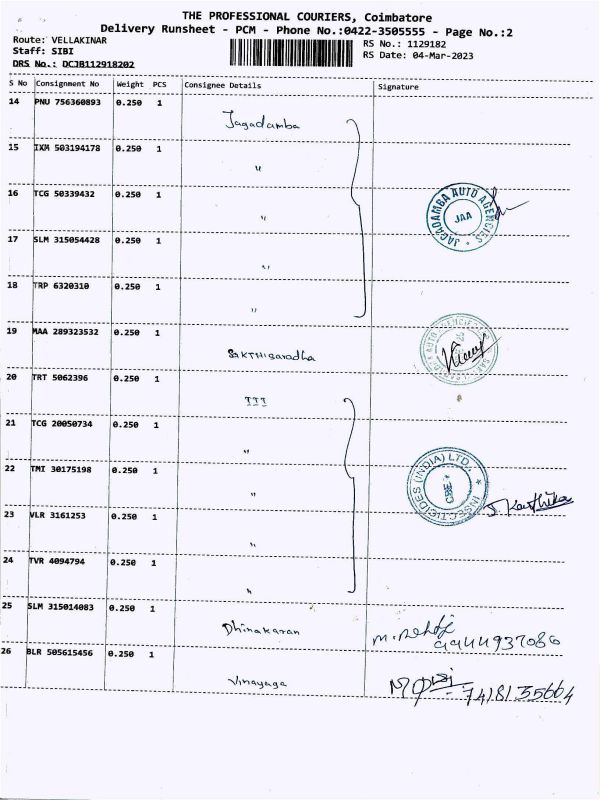 THE PROFESSIONAL COURIERS, Coimbatore
Delivery Runsheet - PCM - Phone No.:0422-3505555 - Page No.:2
Route: VELLAKINAR
Staff: SIBI
DRS No.: DCJB112918202
RS No.: 1129182
RS Date: 04-Mar-2023
S No Consignment No Weight PCS Consignee Details Signature
14 PNU 756360893 0.250 1 Jagadamba
15 IXM 503194178 0.250 1 "
16 TCG 50339432 0.250 1 "
JAGADAMBA AUTO AGENCIES
JAA
17 SLM 315054428 0.250 1 "
18 TRP 6320310 0.250 1 "
19 MAA 289323532 0.250 1 SAKTHISaradha
20 TRT 5062396 0.250 1 III
21 TCG 20050734 0.250 1 "
22 TMI 30175198 0.250 1 "
INSECTICIDES (INDIA) LTD.
CBE
J. Karthika
23 VLR 3161253 0.250 1 "
24 TVR 4094794 0.250 1 "
25 SLM 315014083 0.250 1 Dhinakaran
9944937086
26 BLR 505615456 0.250 1 Vinayaga
7418135664